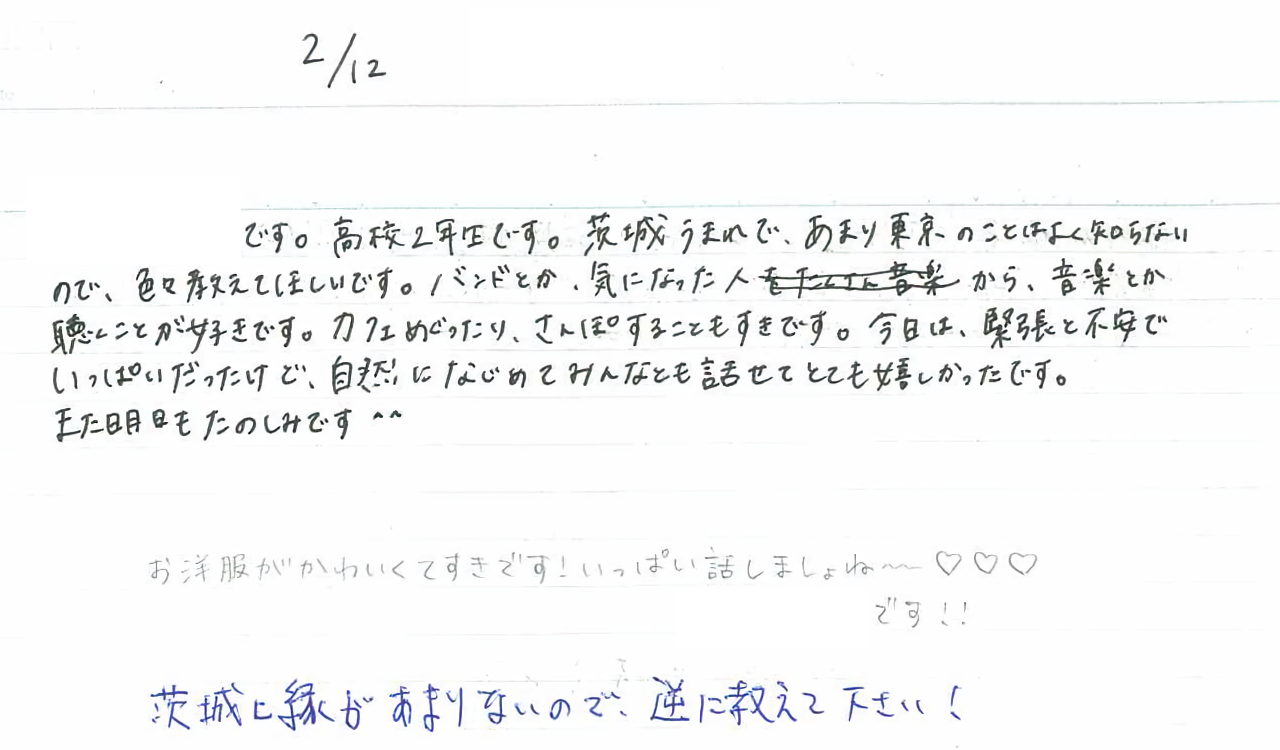 2/12
です。高校2年生です。茨城うまれで、あまり東京のことはよく知らない
ので、色々教えてほしいです。バンドとか、気になった人から、音楽とか
聴くことが好きです。カフェめぐったり、さんぽすることもすきです。今日は、緊張と不安で
いっぱいだったけど、自然になじめてみんなとも話せてとても嬉しかったです。
また明日もたのしみです ^^
お洋服がかわいくてすきです!いっぱい話しましょね〜♡♡♡
です!!
茨城に縁があまりないので、逆に教えて下さい!